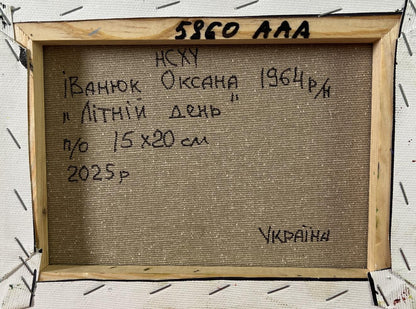 5860 ААА
НСХУ
іванюк Оксана 1964р/н
"Літній день"
п/о 15x20 см
2025р
Україна